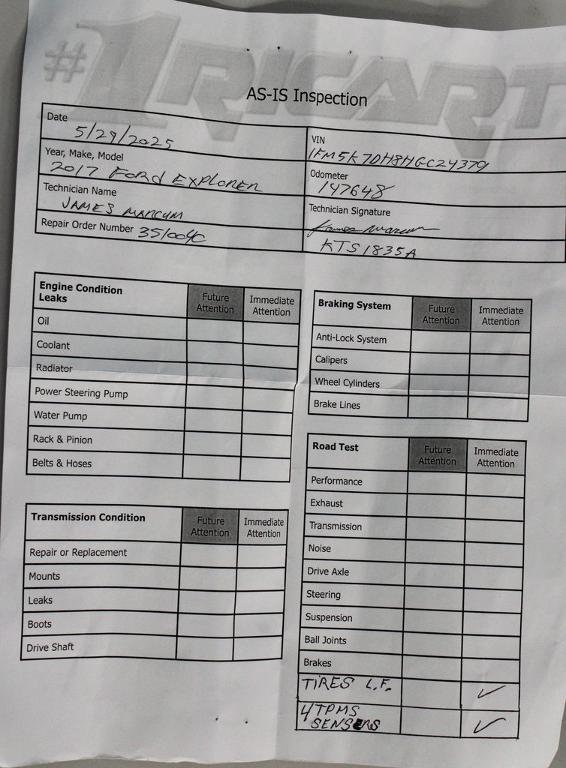 #1 RICART
AS-IS Inspection
Date
5/29/2025
VIN
1FM5K7DH8HGC24379
Year, Make, Model
2017 FORD EXPLORER
Odometer
147648
Technician Name
JAMES MARCUM
Technician Signature
James Marcum
Repair Order Number 351004C
KTS1835A
Engine Condition
Leaks
Future
Attention
Immediate
Attention
Oil
Coolant
Radiator
Power Steering Pump
Water Pump
Rack & Pinion
Belts & Hoses
Transmission Condition
Future
Attention
Immediate
Attention
Repair or Replacement
Mounts
Leaks
Boots
Drive Shaft
Braking System
Future
Attention
Immediate
Attention
Anti-Lock System
Calipers
Wheel Cylinders
Brake Lines
Road Test
Future
Attention
Immediate
Attention
Performance
Exhaust
Transmission
Noise
Drive Axle
Steering
Suspension
Ball Joints
Brakes
TIRES L.F. ✓
4 TPMS
SENSORS ✓